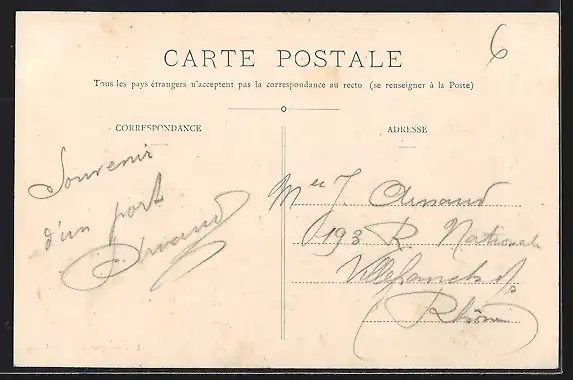 6
CARTE POSTALE
Tous les pays étrangers n'acceptent pas la correspondance au recto (se renseigner à la Poste)
CORRESPONDANCE
ADRESSE
Souvenir
d'un port
Arnaud
Mlle J. Arnaud
193 R. Nationale
Villefranche s/s
Rhône